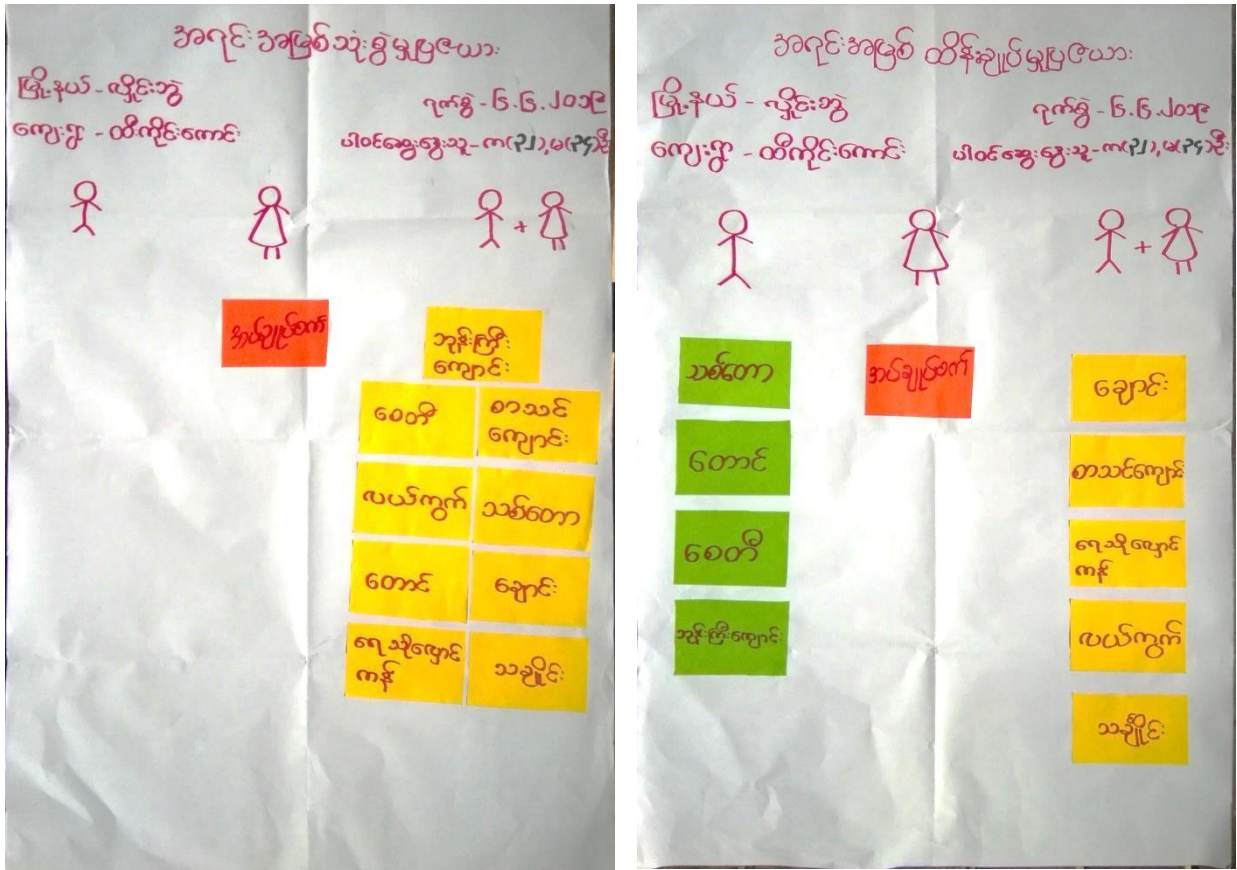 အရင်းအမြစ်သုံးစွဲမှုပြဇယား
မြို့နယ် - လှိုင်းဘွဲ
ရက်စွဲ - ၆.၆.၂၀၁၉
ကျေးရွာ - ထီကိုင်းကောင်း
ပါဝင်ဆွေးနွေးသူ - ကျ(၃၂), မ(၃၄)ဦး
+
အပ်ချုပ်စက်
ဘုန်းကြီး
ကျောင်း
စေတီ
စာသင်
ကျောင်း
လယ်ကွက်
သစ်တော
တောင်
ချောင်း
ရေသိုလှောင်
ကန်
သင်္ချိုင်း
အရင်းအမြစ် ထိန်းချုပ်မှုပြဇယား
မြို့နယ် - လှိုင်းဘွဲ
ရက်စွဲ - ၆.၆.၂၀၁၉
ကျေးရွာ - ထီကိုင်းကောင်း
ပါဝင်ဆွေးနွေးသူ - ကျ(၃၂), မ(၃၄)ဦး
+
သစ်တော
တောင်
စေတီ
ဘုန်းကြီးကျောင်း
အပ်ချုပ်စက်
ချောင်း
စာသင်ကျောင်း
ရေသိုလှောင်
ကန်
လယ်ကွက်
သင်္ချိုင်း